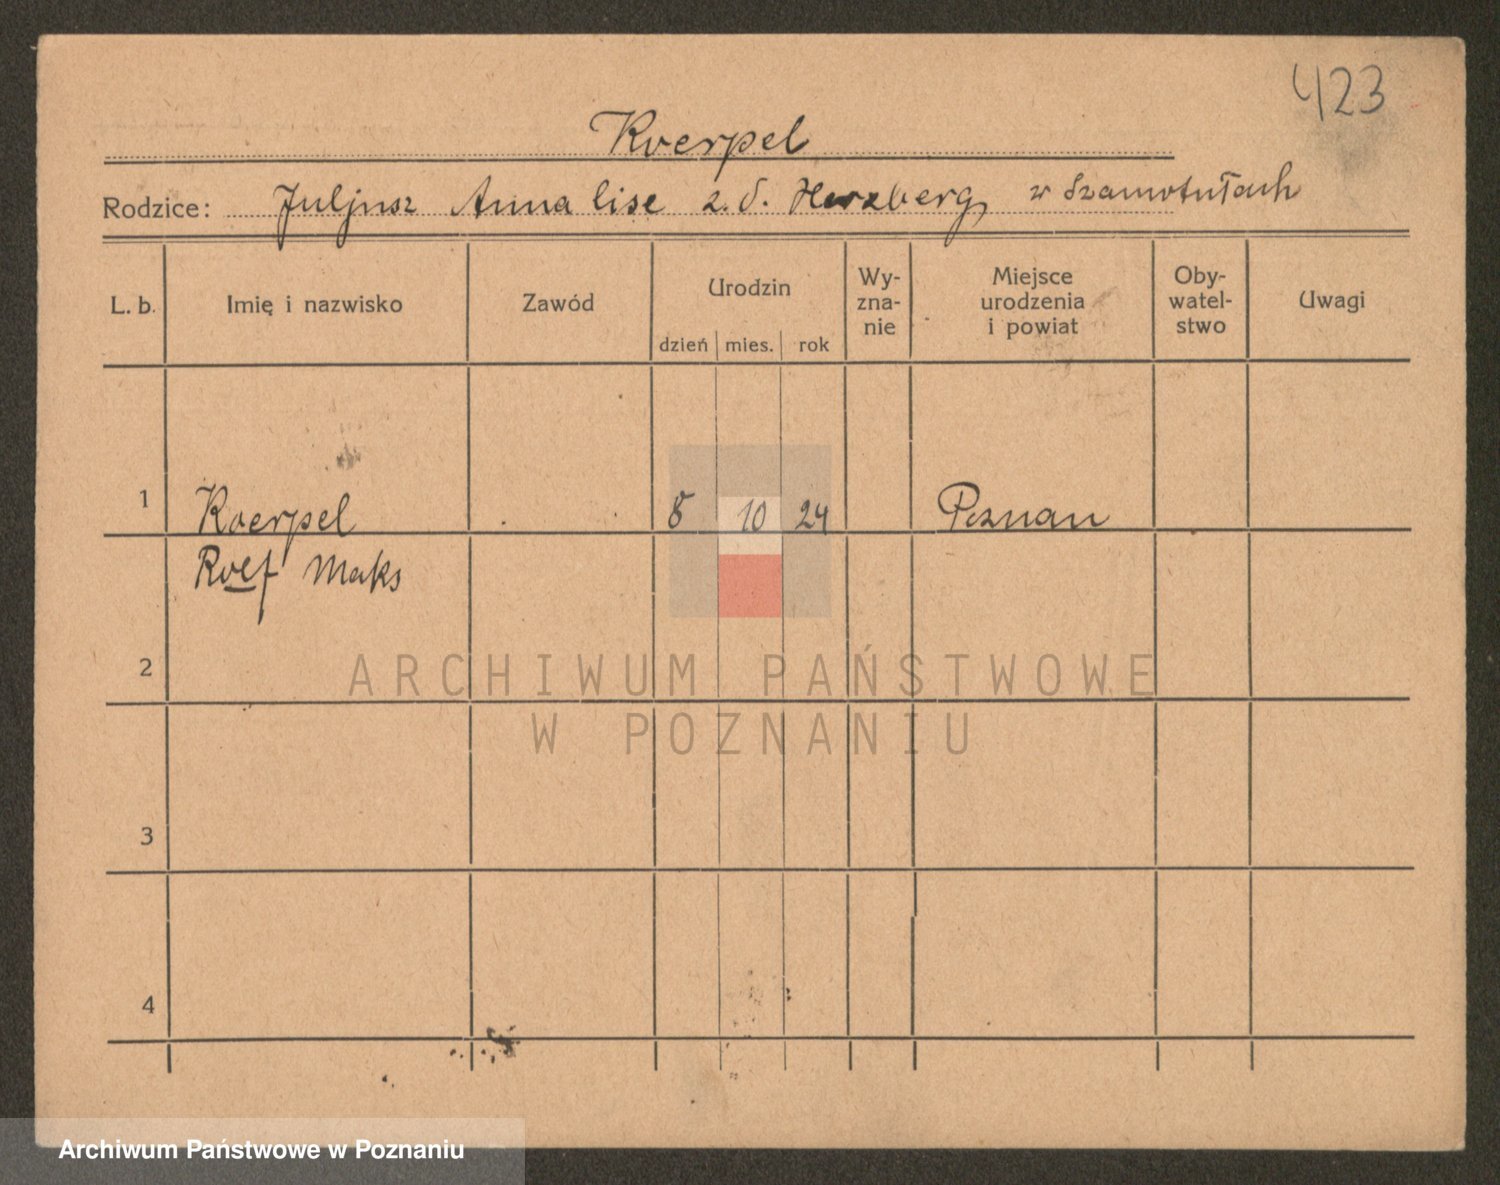 423
Koerpel
Rodzice: Juljusz Anna lise z. d. Herzberg w Szamotułach
L. b. Imię i nazwisko Zawód Urodzin dzień mies. rok Wy-zna-nie Miejsce urodzenia i powiat Oby-watel-stwo Uwagi
1 Koerpel 8 10 24 Poznan
Roef Maks
2
ARCHIWUM PAŃSTWOWE
W POZNANIU
3
4
Archiwum Państwowe w Poznaniu